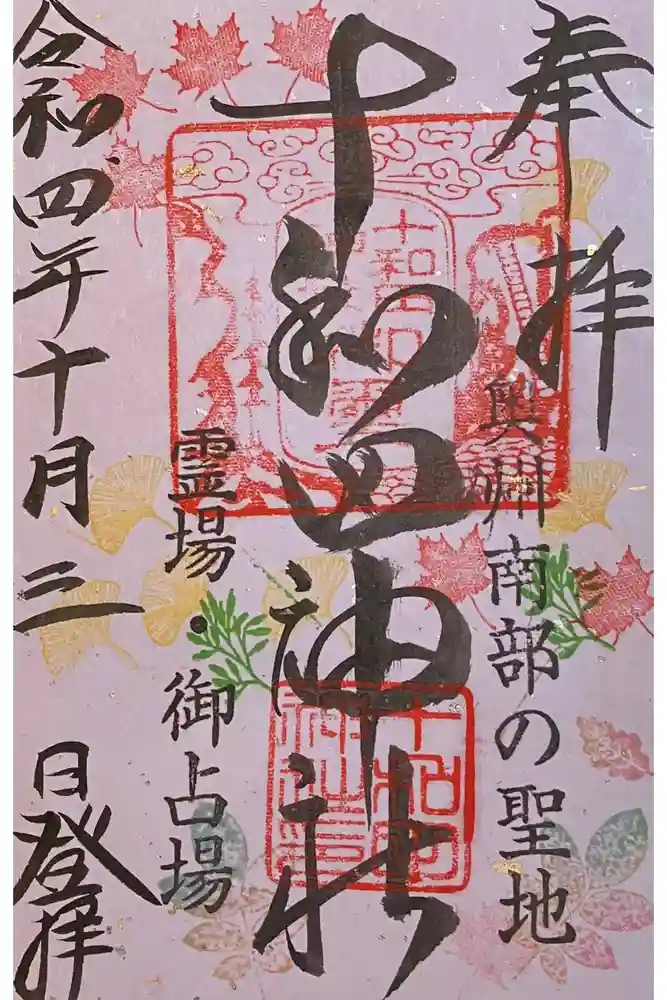 奉拝
奥州南部の聖地
十和田神社
十和田
神社印
霊場・御占場
令和四年十月三日登拝